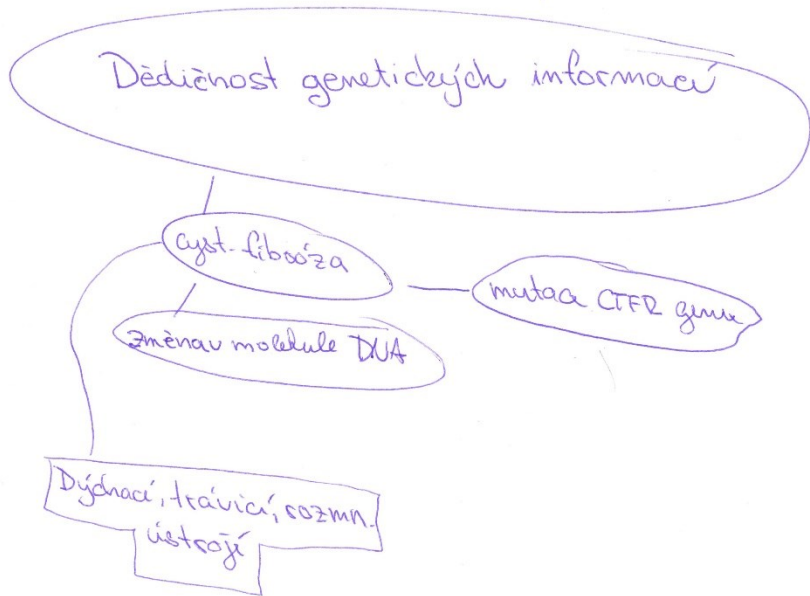 Dědičnost genetických informací
cyst. fibróza
mutace CTFR genu
změna v molekule DNA
Dýchací, trávicí, rozmn.
ústrojí